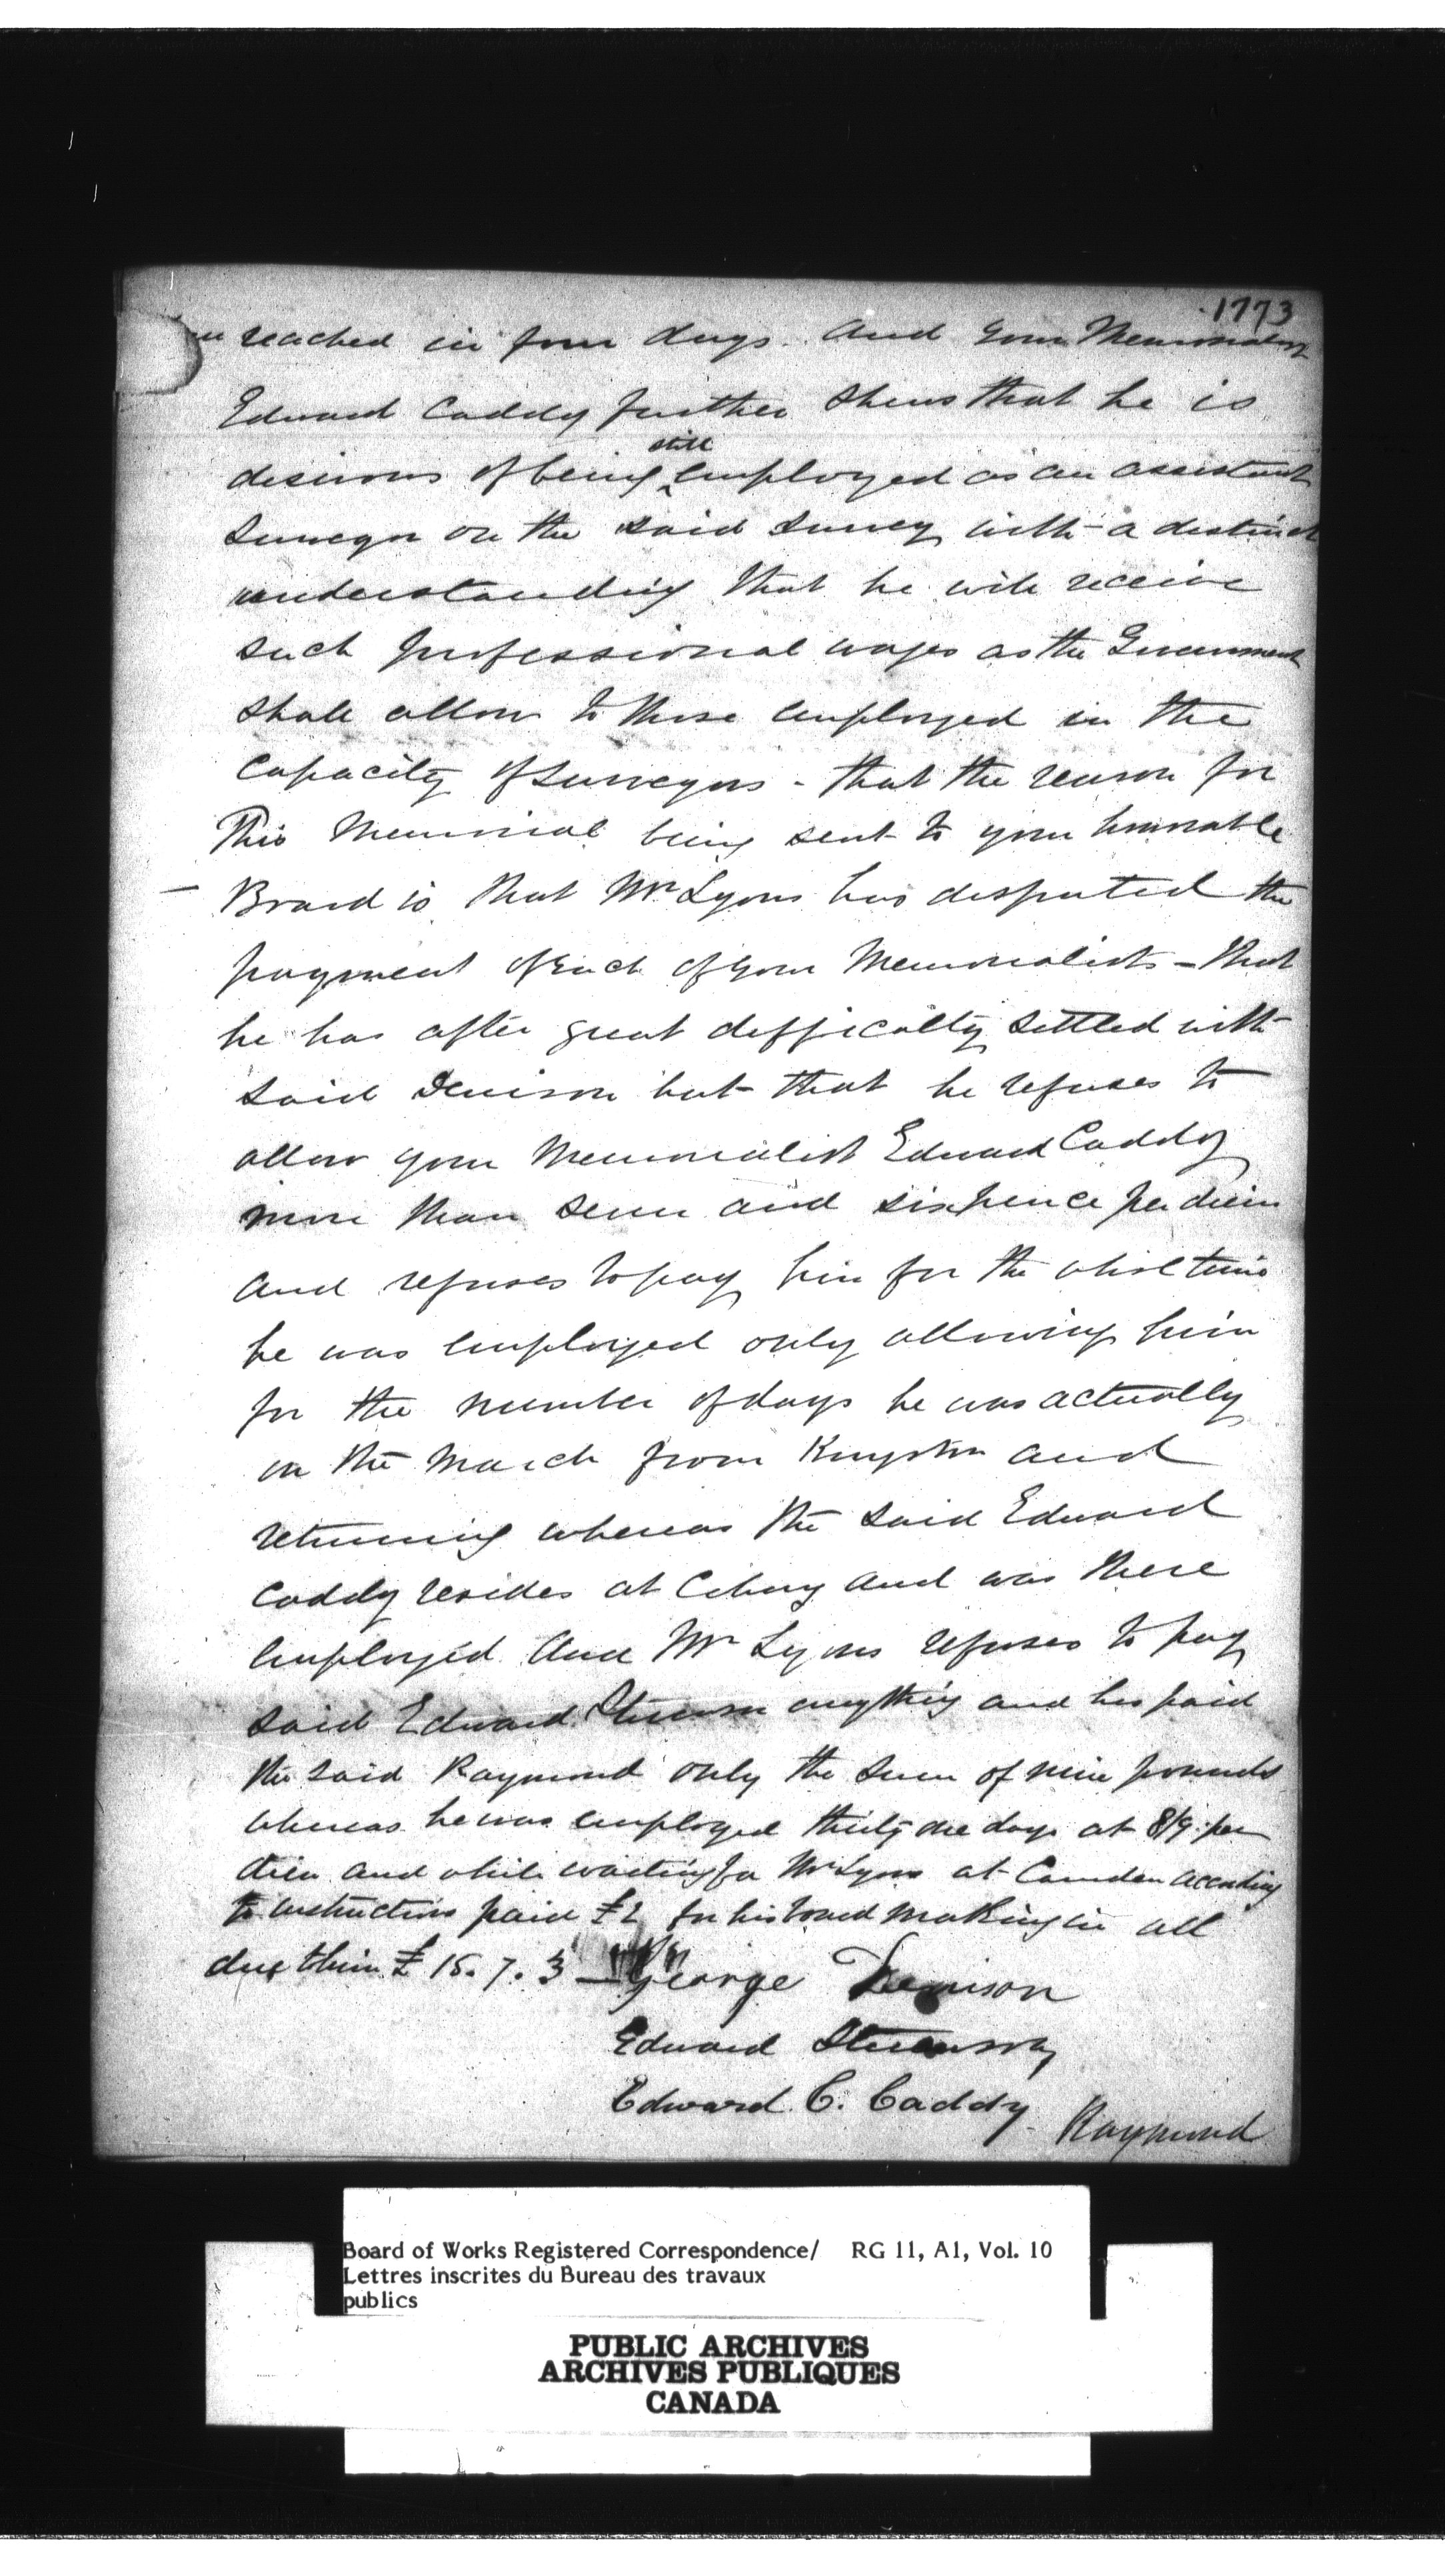 1773
reached in four days. And your Memorialist
Edward Caddy further shews that he is
still
desirous of being employed as an assistant
Surveyor on the said Survey with a distinct
understanding that he will receive
such professional wages as the Government
shall allow to those employed in the
Capacity of Surveyors - that the reason for
This Memorial being sent to your honorable
Board is that Mr Lyons has disputed the
payment of each of your Memorialists - that
he has after great difficulty settled with
said Denison but that he refuses to
allow your Memorialist Edward Caddy
more than seven and sixpence per diem
and refuses to pay him for the whole time
he was employed only allowing him
for the number of days he was actually
on the march from Kingston and
returning whereas the said Edward
Caddy resides at and was there
employed And Mr Lyons refuses to pay
said Edward Stevenson anything and has paid
the said Raymond only the sum of nine pounds
whereas he was employed thirty one days at 8/9 per
diem and while waiting for Mr Lyons at Camden according
to instructions paid £2 for his board making in all
due him £ 15. 7. 3 — George Denison
Edward Stevenson
Edward C. Caddy
Raymond
Board of Works Registered Correspondence/ RG 11, A1, Vol. 10
Lettres inscrites du Bureau des travaux
publics
PUBLIC ARCHIVES
ARCHIVES PUBLIQUES
CANADA